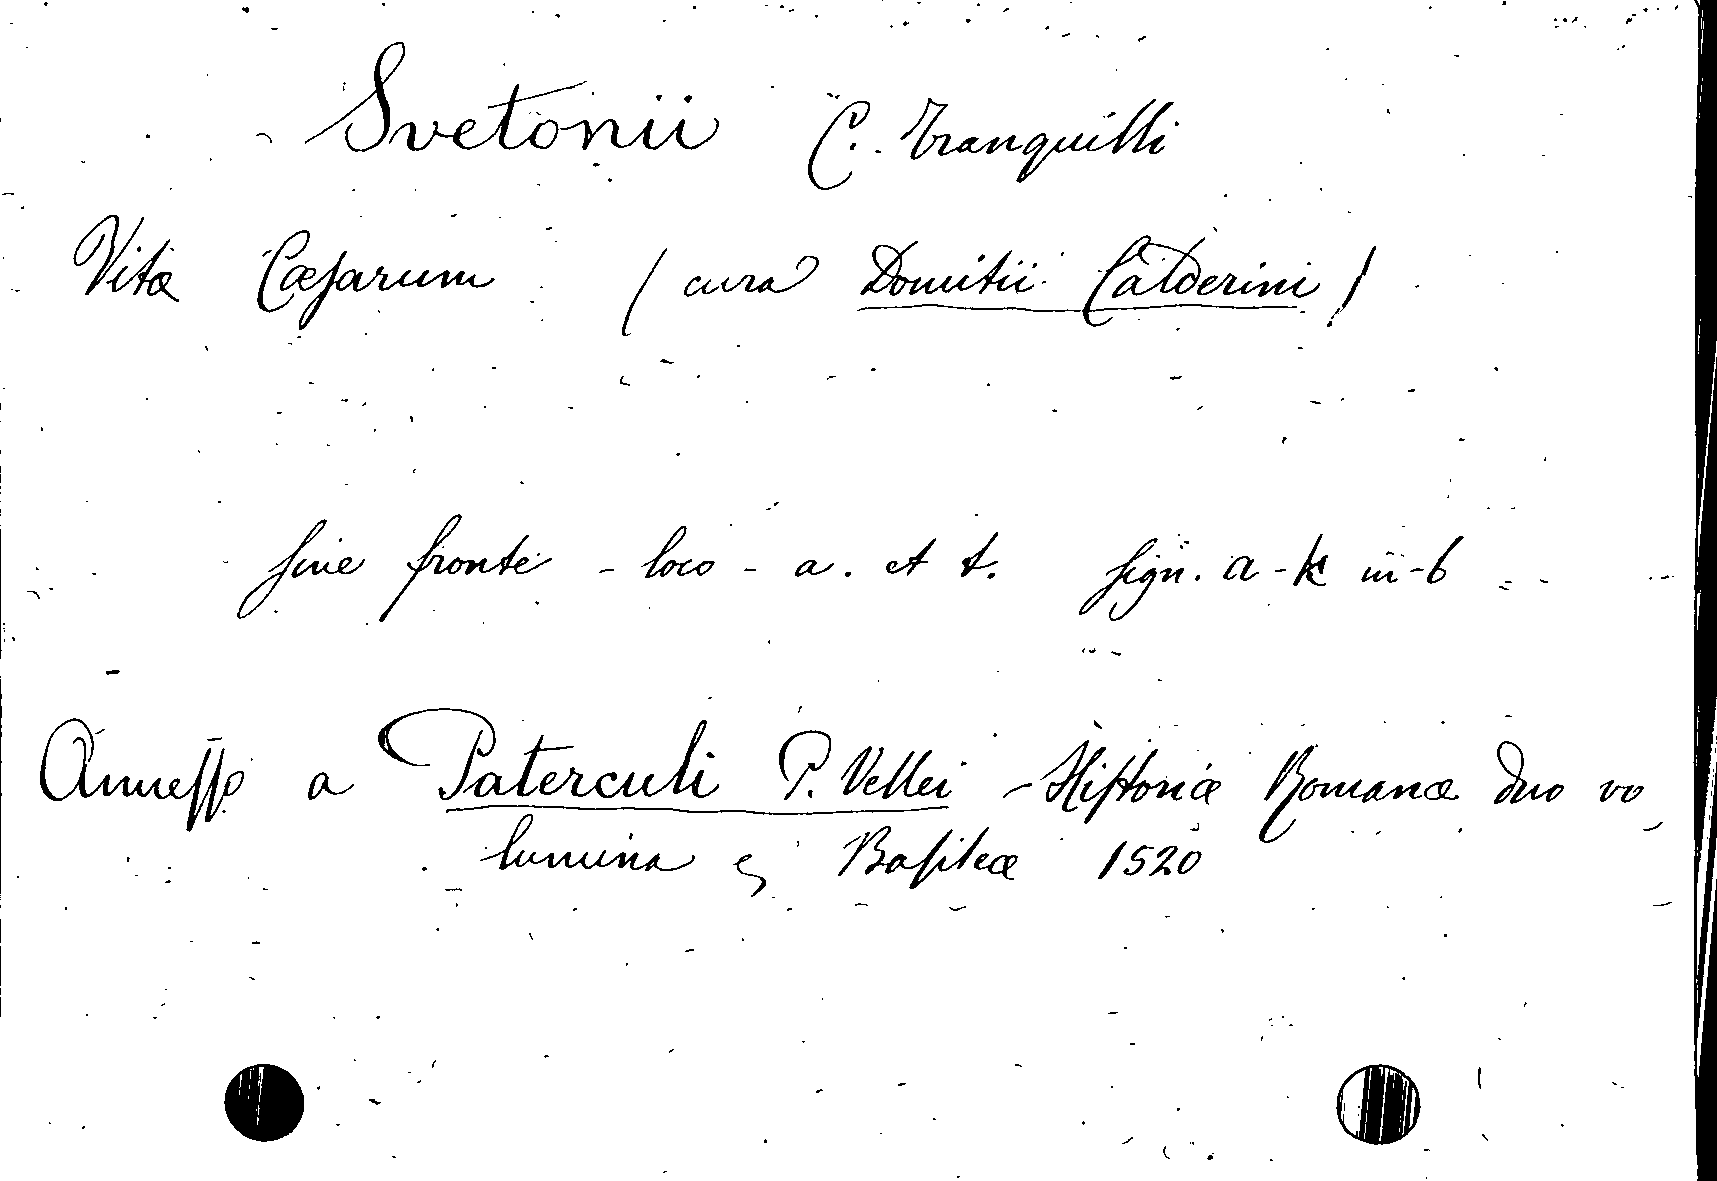 Svetonii C. Tranquilli
Vitæ Cæsarum (cura Domitii Calderini)
sine fronte - loco - a. et t. sign. a-k iii-b
Annesso a Paterculi P. Vellei - Historiæ Romanæ duo vo
lumina Basileæ 1520